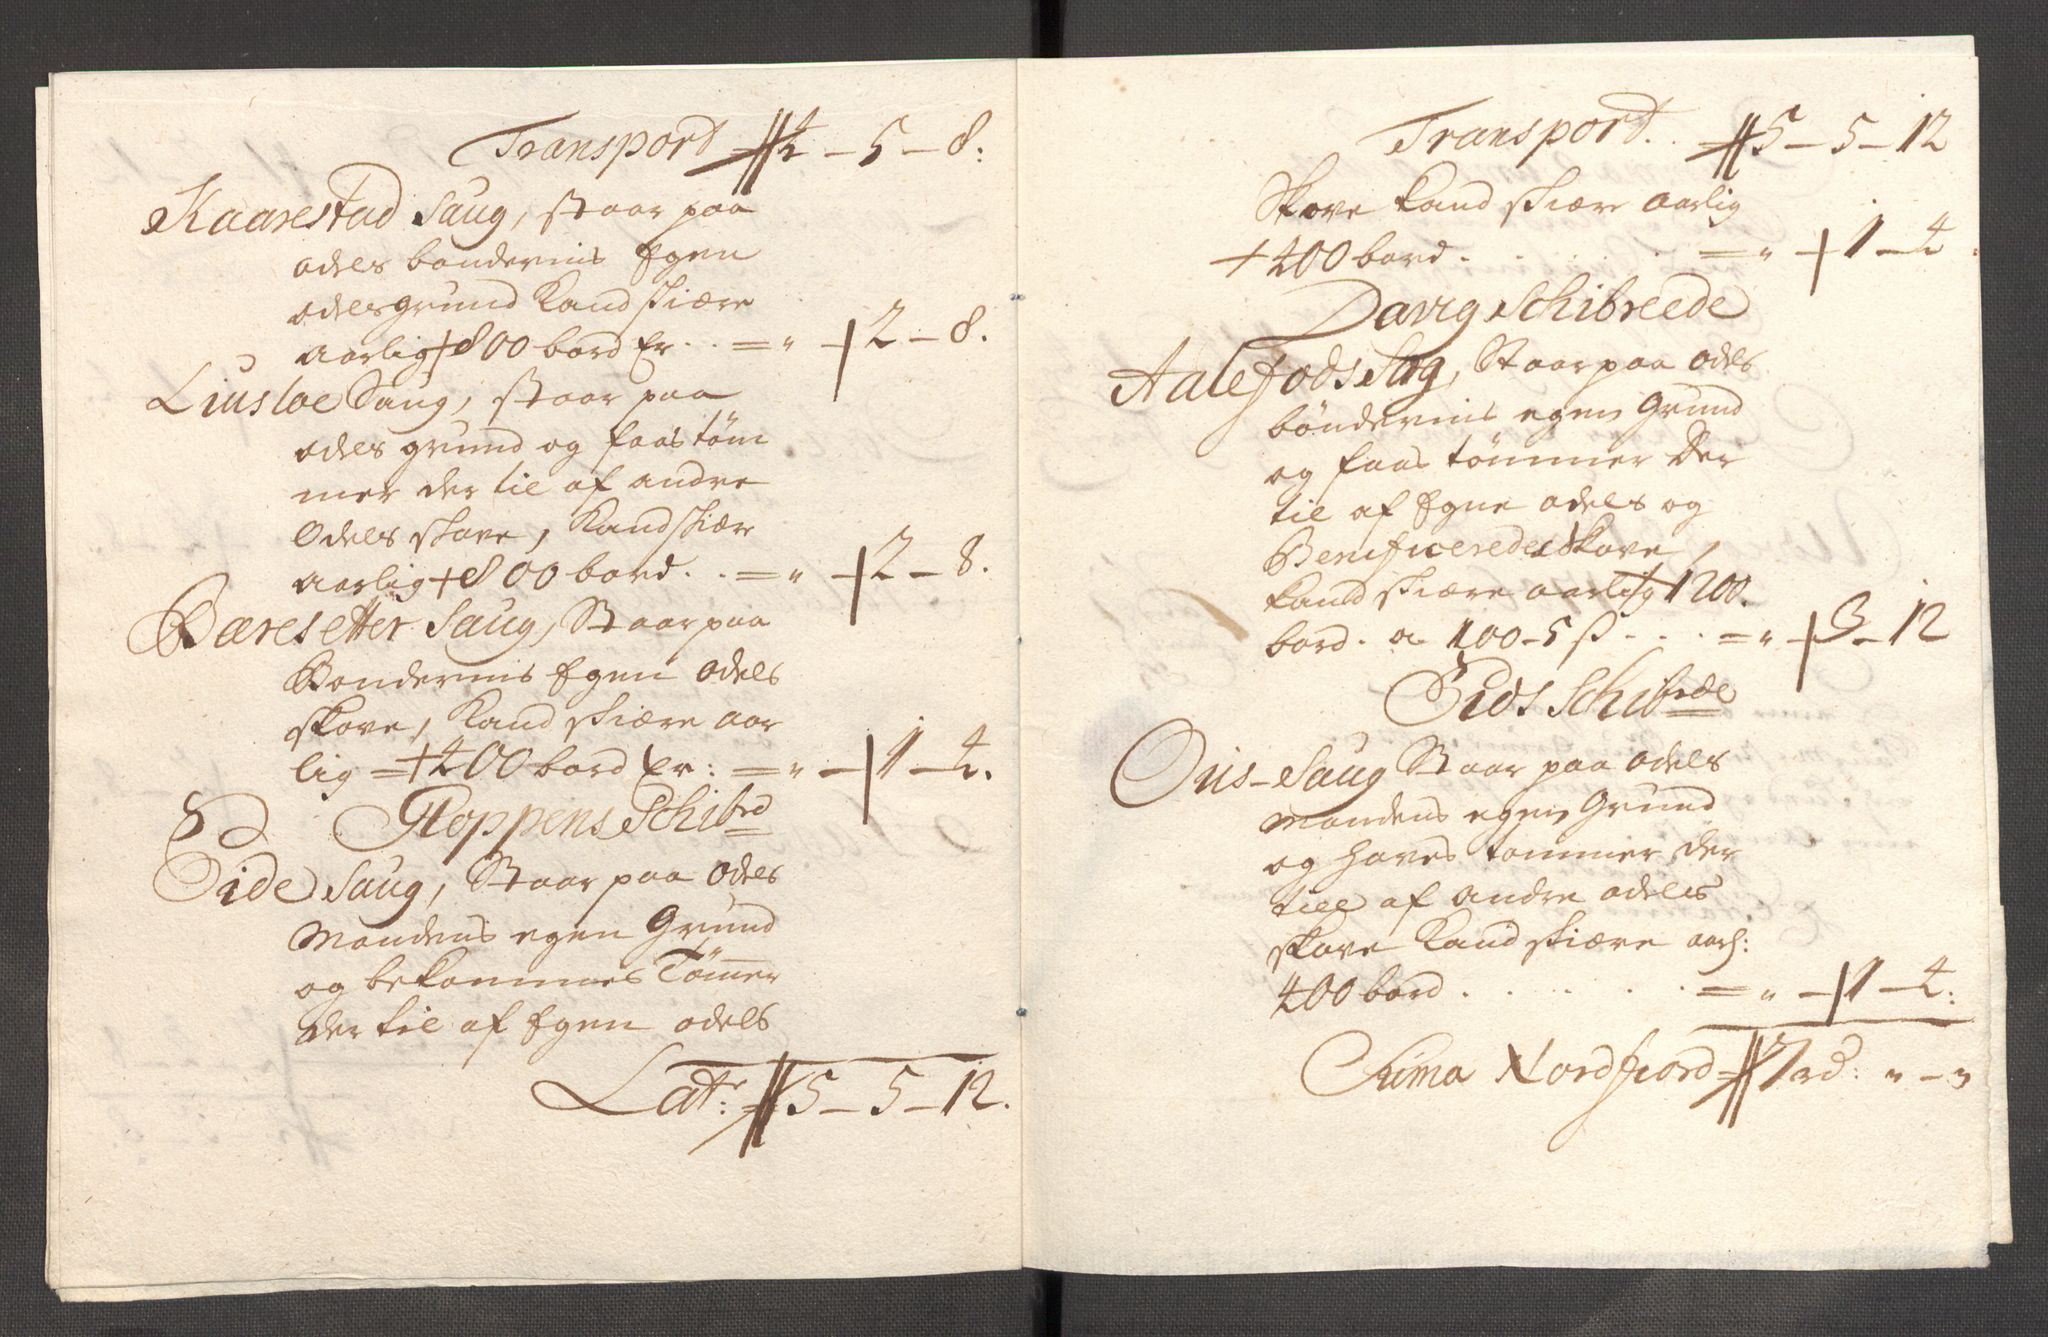 Transport 4 – 5 – 8:
Kaarestad Saug, staar paa
odels bondernis Egen
odelsgrund Kand skiære
aarlig 800 bord Er .. = " – 2 – 8.
Liusloe Saug, staar paa
odels grund og faas tøm
mer der til af andre
Odels skove, Kand skiær
aarlig 800 bord .. = " – 2 – 8.
Bæresetter Saug, Staar paa
Bondernis Egen odels
skove, Kand skiære aar
lig = 400 bord Er: = " – 1 – 4.
Gloppens Schibrd
Eide Saug, Staar paa odels
Mandens egen Grund
og bekommes Tømmer
der til af Egen odels
Latr: 5 – 5 – 12.
Transport. 5 – 5 – 12
Skove kand skiære aarlig
400 bord . = " – 1 – 4.
Davig Schibreede
Aalefods Sag, Staar paa odels
bøndernis egen Grund
og faas tømmer Der
til af Egne odels og
Benificerede Skove,
kand skiære aarlig 1200.
bord. a 100 – 5 ß . . . = " – 3 – 12
Eids Schibrede
Ous – Saug Staar paa odels
Mandens egen Grund
og haves tømmer der
till af andre odels
skove Kand skiære aarl:
400 bord . . . . . = " – 1 – 4:
Suma Nordfiord 7 rd: " – "